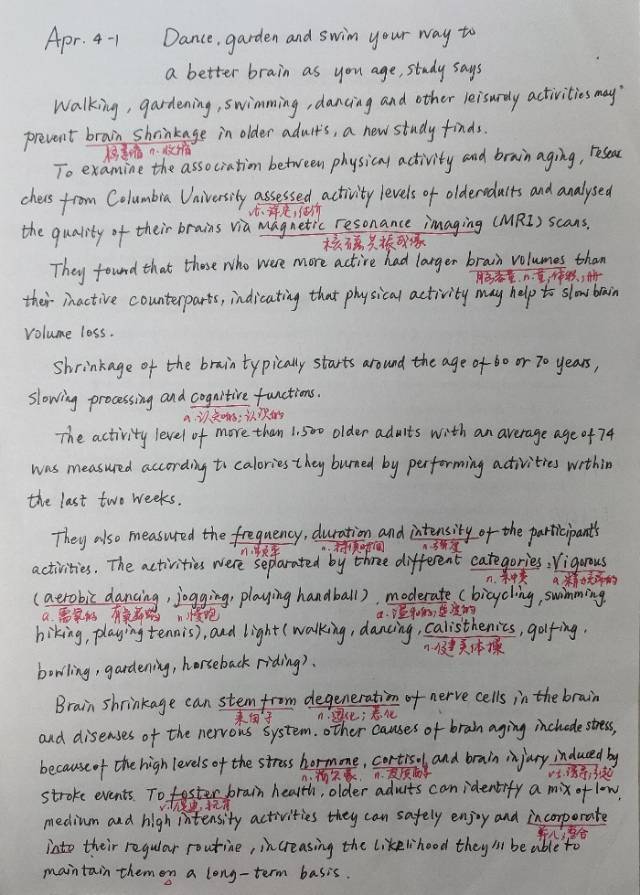 Apr. 4-1 Dance, garden and swim your way to
a better brain as you age, study says
Walking, gardening, swimming, dancing and other leisurely activities may
prevent brain shrinkage in older adults, a new study finds.
n. 收缩
To examine the association between physical activity and brain aging, resear
chers from Columbia University assessed activity levels of older adults and analysed
vt. 评定; 估价
the quality of their brains via magnetic resonance imaging (MRI) scans.
核磁共振成像
They found that those who were more active had larger brain volumes than
脑容量 n. 量; 体积; 册
their inactive counterparts, indicating that physical activity may help to slow brain
volume loss.
Shrinkage of the brain typically starts around the age of 60 or 70 years,
slowing processing and cognitive functions.
a. 认知的; 认识的
The activity level of more than 1,500 older adults with an average age of 74
was measured according to calories they burned by performing activities within
the last two weeks.
They also measured the frequency, duration and intensity of the participant's
n. 频率 n. 持续时间 n. 强度
activities. The activities were separated by three different categories: Vigorous
n. 种类 a. 精力充沛的
(aerobic dancing, jogging, playing handball), moderate (bicycling, swimming,
a. 需氧的 有氧舞蹈 n. 慢跑 a. 温和的; 适度的
hiking, playing tennis), and light (walking, dancing, calisthenics, golfing,
n. 健美体操
bowling, gardening, horseback riding).
Brain shrinkage can stem from degeneration of nerve cells in the brain
来自于 n. 退化; 恶化
and diseases of the nervous system. Other causes of brain aging include stress,
because of the high levels of the stress hormone, cortisol and brain injury induced by
n. 荷尔蒙 n. 皮质醇 vt. 诱导; 引起
stroke events. To foster brain health, older adults can identify a mix of low,
v. 促进; 抚育
medium and high intensity activities they can safely enjoy and incorporate
并入; 整合
into their regular routine, increasing the likelihood they'll be able to
maintain them on a long-term basis.